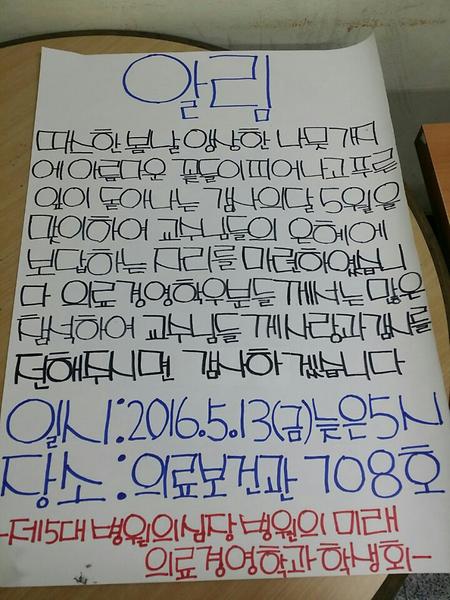 알림
따스한 봄날 앙상한 나뭇가지
에 아름다운 꽃들이 피어나고 푸른
잎이 돋아나는 감사의달 5월을
맞이하여 교수님들의 은혜에
보답하는 자리를 마련하였습니
다 의료경영학우분들께서는 많은
참석하여 교수님들께 사랑과 감사를
전해주시면 감사하겠습니다
일시:2016.5.13(금)늦은5시
장소:의료보건관 708호
-제5대 병원의심장 병원의 미래
의료경영학과학생회-